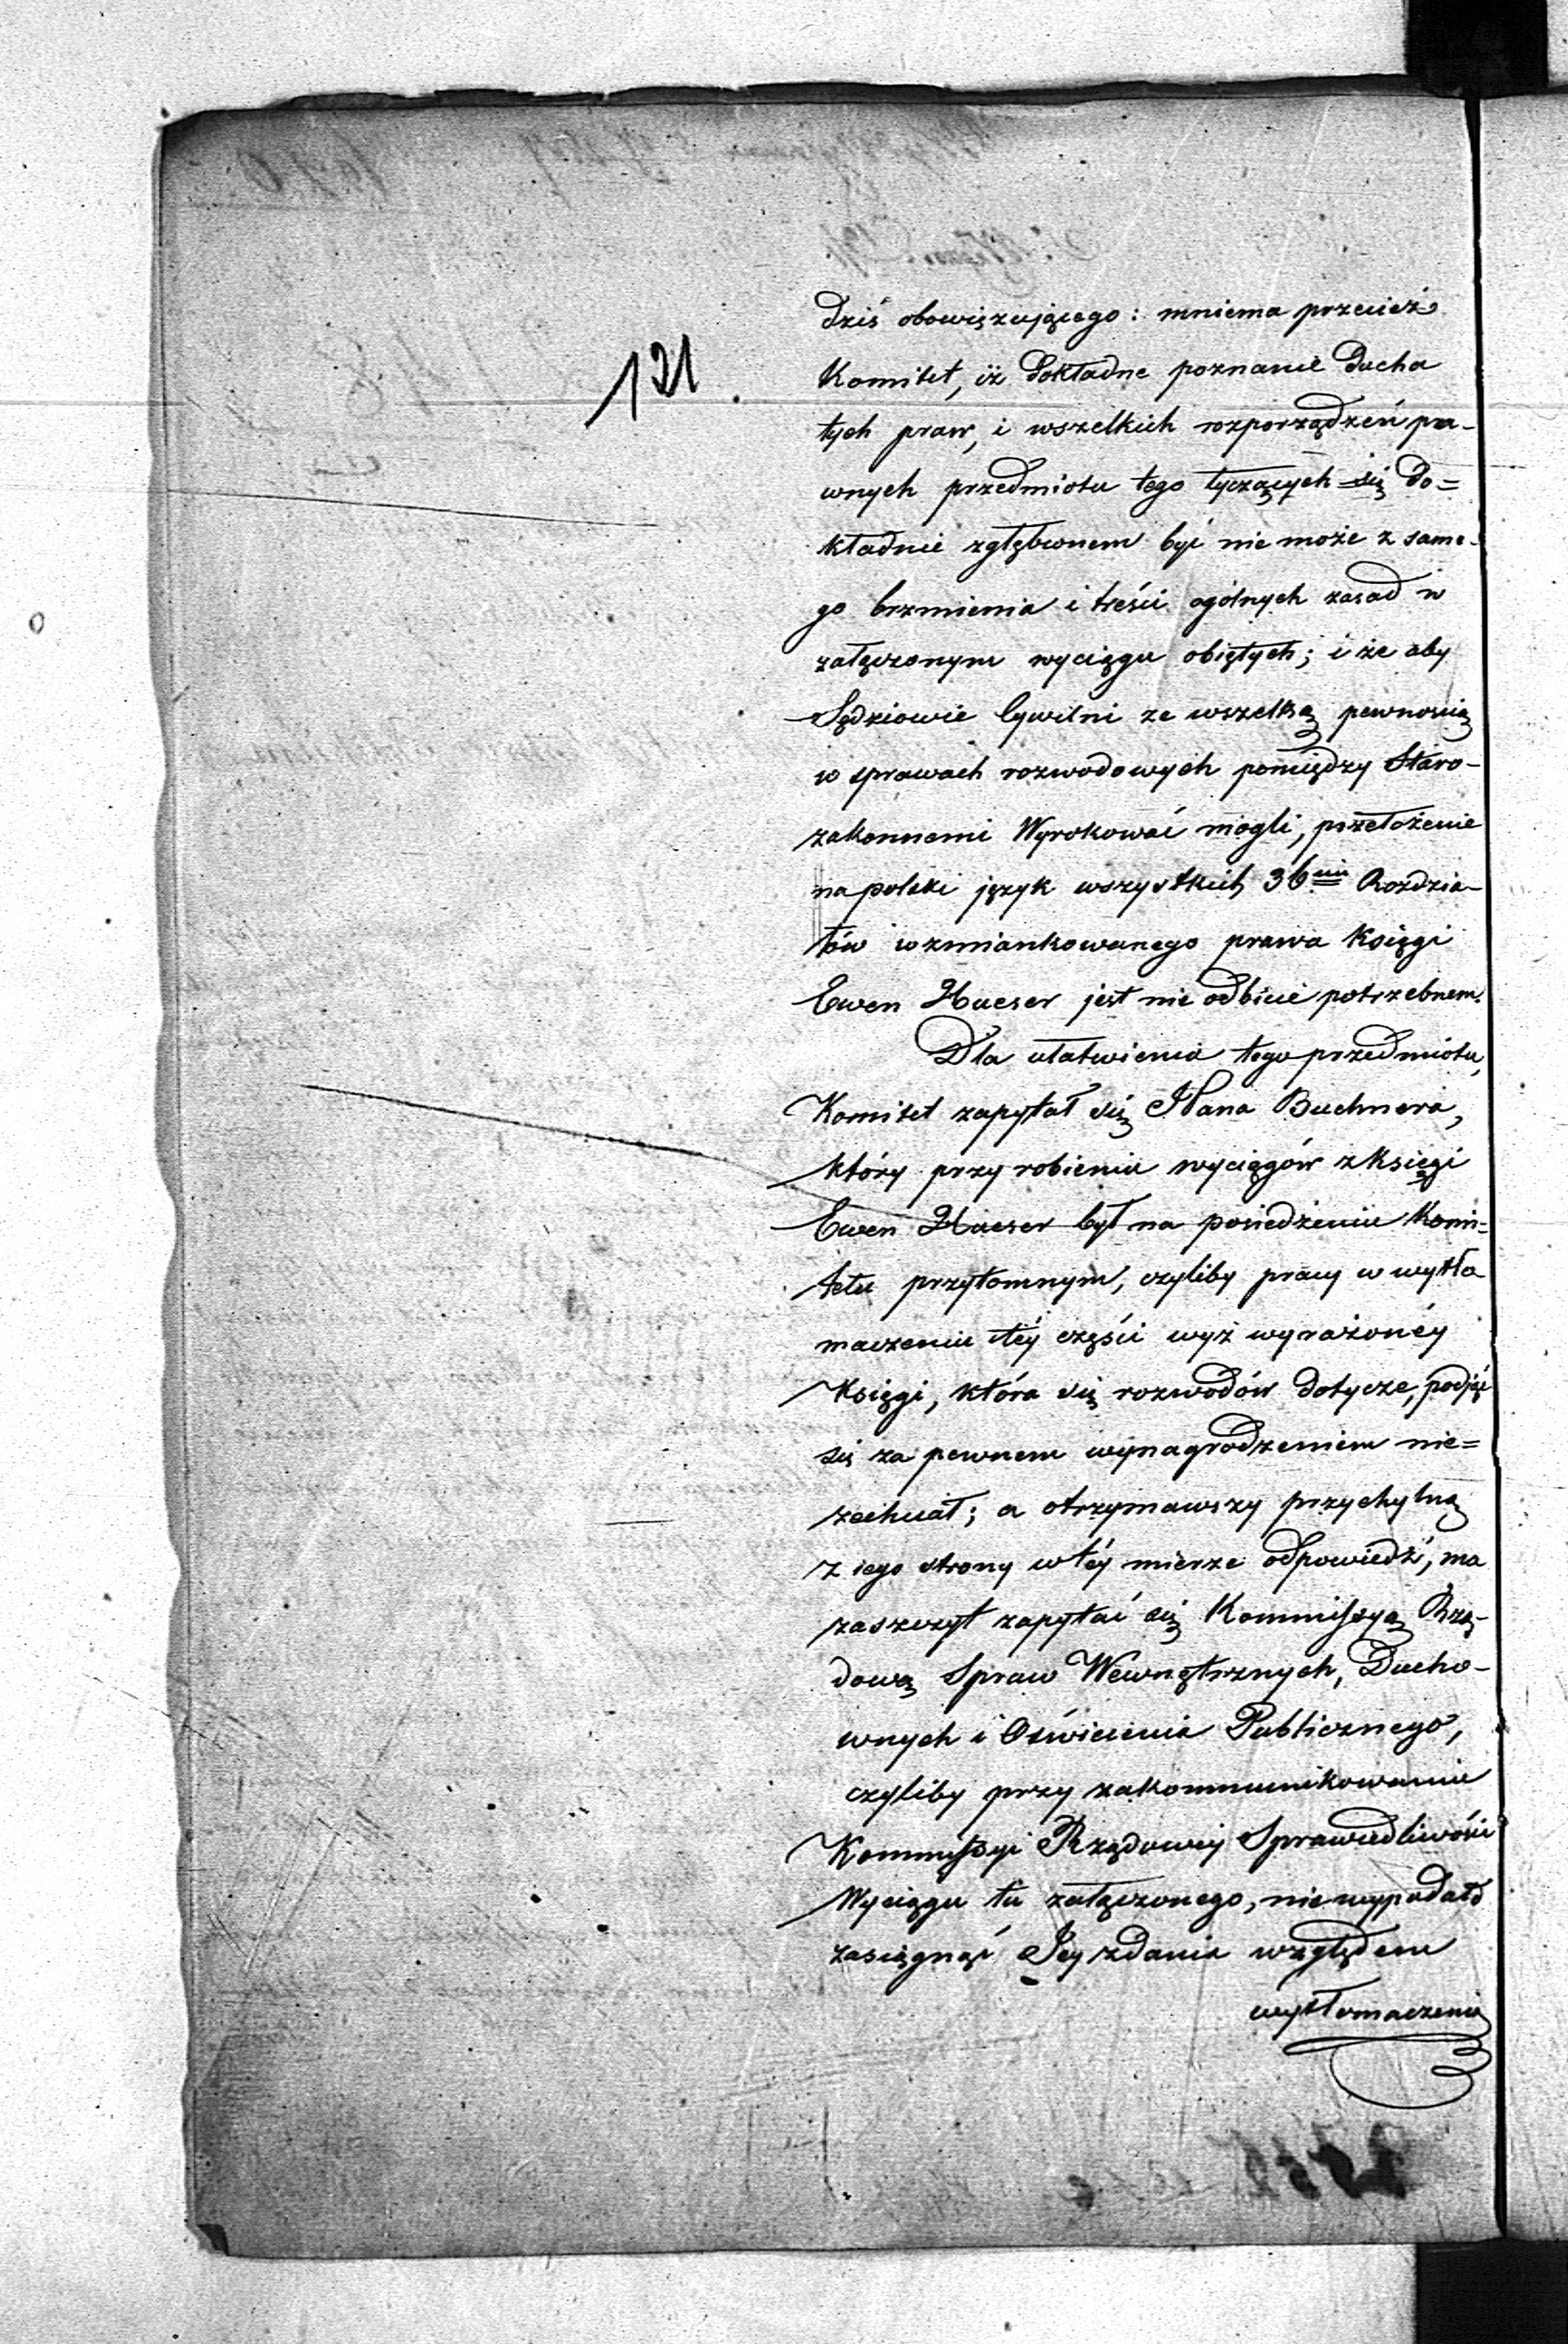 121
dziś obowięzującego: mniema przecież
Komitet, iż dokładne poznanie Ducha
tych praw, i wszelkich rozporządzeń pra-
wnych przedmiotu tego tyczących się do=
kładnie zgłębionem być nie może z same-
go brzmienia i treści ogólnych zasad w
załączonym wyciągu obiętych; i że aby
Sędziowie Cywilni ze wszelką pewnością
w sprawach rozwodowych pomiędzy Staro-
zakonnemi Wyrokować mogli, przełożenie
na polski język wszystkich 36ciu Rozdzia-
łów wzmiankowanego prawa Księgi
Ewen Haeser jest nie odbicie potrzebnem.
Dla ułatwienia tego przedmiotu,
Komitet zapytał się JPana Buchnera,
który przy robieniu wyciągów z Księgi
Ewen Haeser był na posiedzeniu Komi=
tetu przytomnym, czyliby pracy w wytło
maczeniu téy części wyż wyrażonéy
Księgi, która się rozwodów dotycze, podjąć
się za pewnem wynagrodzeniem nie=
zechciał; a otrzymawszy przychylną
z iego strony w téy mierze odpowiedź, ma
zaszczyt zapytać się Kommissyą Rzą-
dową Spraw Wewnętrznych, Ducho-
wnych i Oświecenia Publicznego,
czyliby przy zakommunikowaniu
Kommissyi Rządowéy Sprawiedliwości
Wyciągu tu załączonego, nie wypadało
zasięgnąć Jey zdania względem
wytłomaczenia